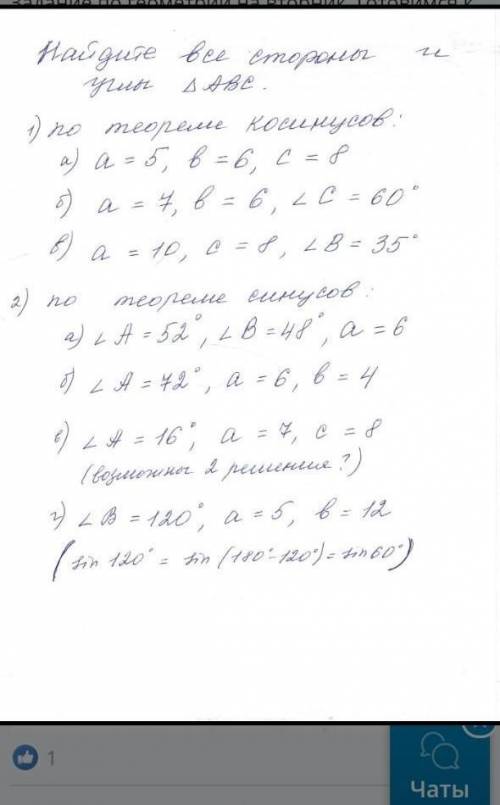 задание по геометрии на вторник. Готовимся к
Найдите все стороны и
углы △ABC.
1) по теореме косинусов:
а) a = 5, b = 6, c = 8
б) a = 7, b = 6, ∠C = 60°
в) a = 10, c = 8, ∠B = 35°
2) по теореме синусов:
а) ∠A = 52°, ∠B = 48°, a = 6
б) ∠A = 72°, a = 6, b = 4
в) ∠A = 16°, a = 7, c = 8
(возможны 2 решения?)
г) ∠B = 120°, a = 5, b = 12
(sin 120° = sin (180°-120°) = sin 60°)
1
Чаты